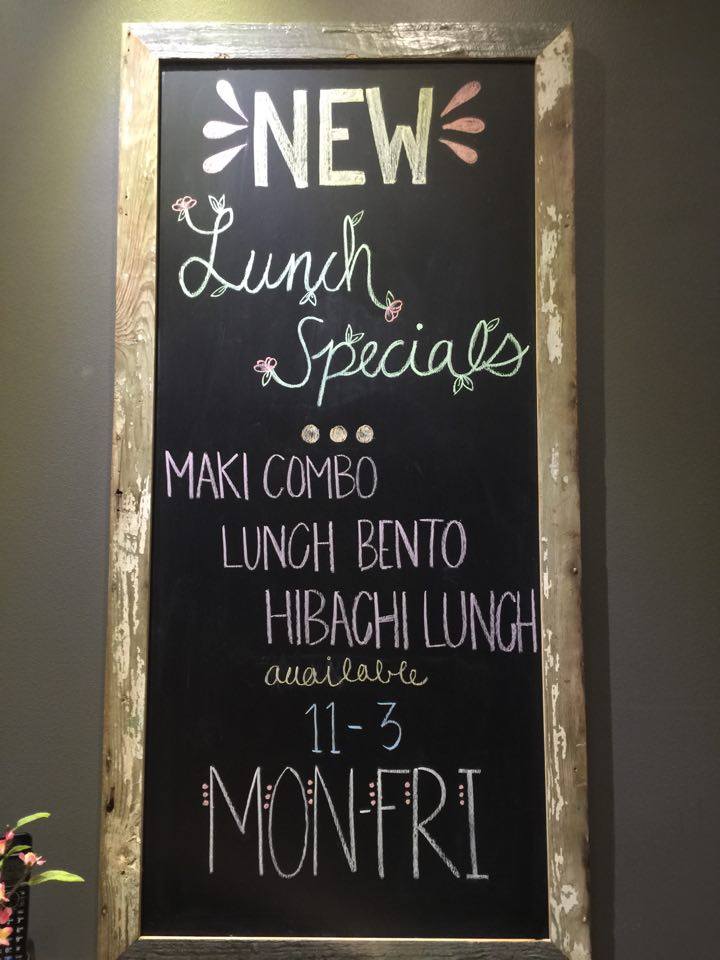 NEW
Lunch
Specials
MAKI COMBO
LUNCH BENTO
HIBACHI LUNCH
available
11-3
MON-FRI